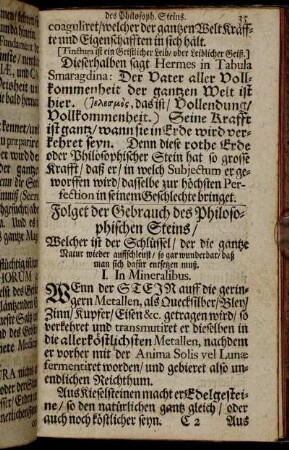 des Philosoph. Steins. 35
coaguliret/welcher der gantzen Welt Kräff-
te und Eigenschafften in sich hält.
[Tinctura ist ein Geistlicher Leib/ oder Leiblicher Geist.]
Dieserhalben sagt Hermes in Tabula
Smaragdina: Der Vater aller Voll-
kommenheit der gantzen Welt ist
hier. (das ist/ Vollendung/
Vollkommenheit.) Seine Krafft
ist gantz/ wann sie in Erde wird ver-
kehret seyn. Denn diese rothe Erde
oder Philosophischer Stein hat so grosse
Krafft/ daß er/ in welch Subjectum er ge-
worffen wird/ dasselbe zur höchsten Per-
fection in seinem Geschlechte bringet.
Folget der Gebrauch des Philoso-
phischen Steins/
Welcher ist der Schlüssel/ der die gantze
Natur wieder auffschleust/ so gar wunderbar/ daß
man sich dafür entsetzen muß.
I. In Mineralibus.
WEnn der STEIN auff die gerin-
gern Metallen, als Quecksilber/ Bley/
Zinn/ Kupfer/ Eisen &c. getragen wird/ so
verkehret und transmutiret er dieselben in
die allerköstlichsten Metallen, nachdem
er vorher mit der Anima Solis vel Lunæ
fermentiret worden/ und gebieret also un-
endlichen Reichthum.
Aus Kieselsteinen macht er Edelgestei-
ne/ so den natürlichen gantz gleich/ oder
auch noch köstlicher seyn. C 2 Aus